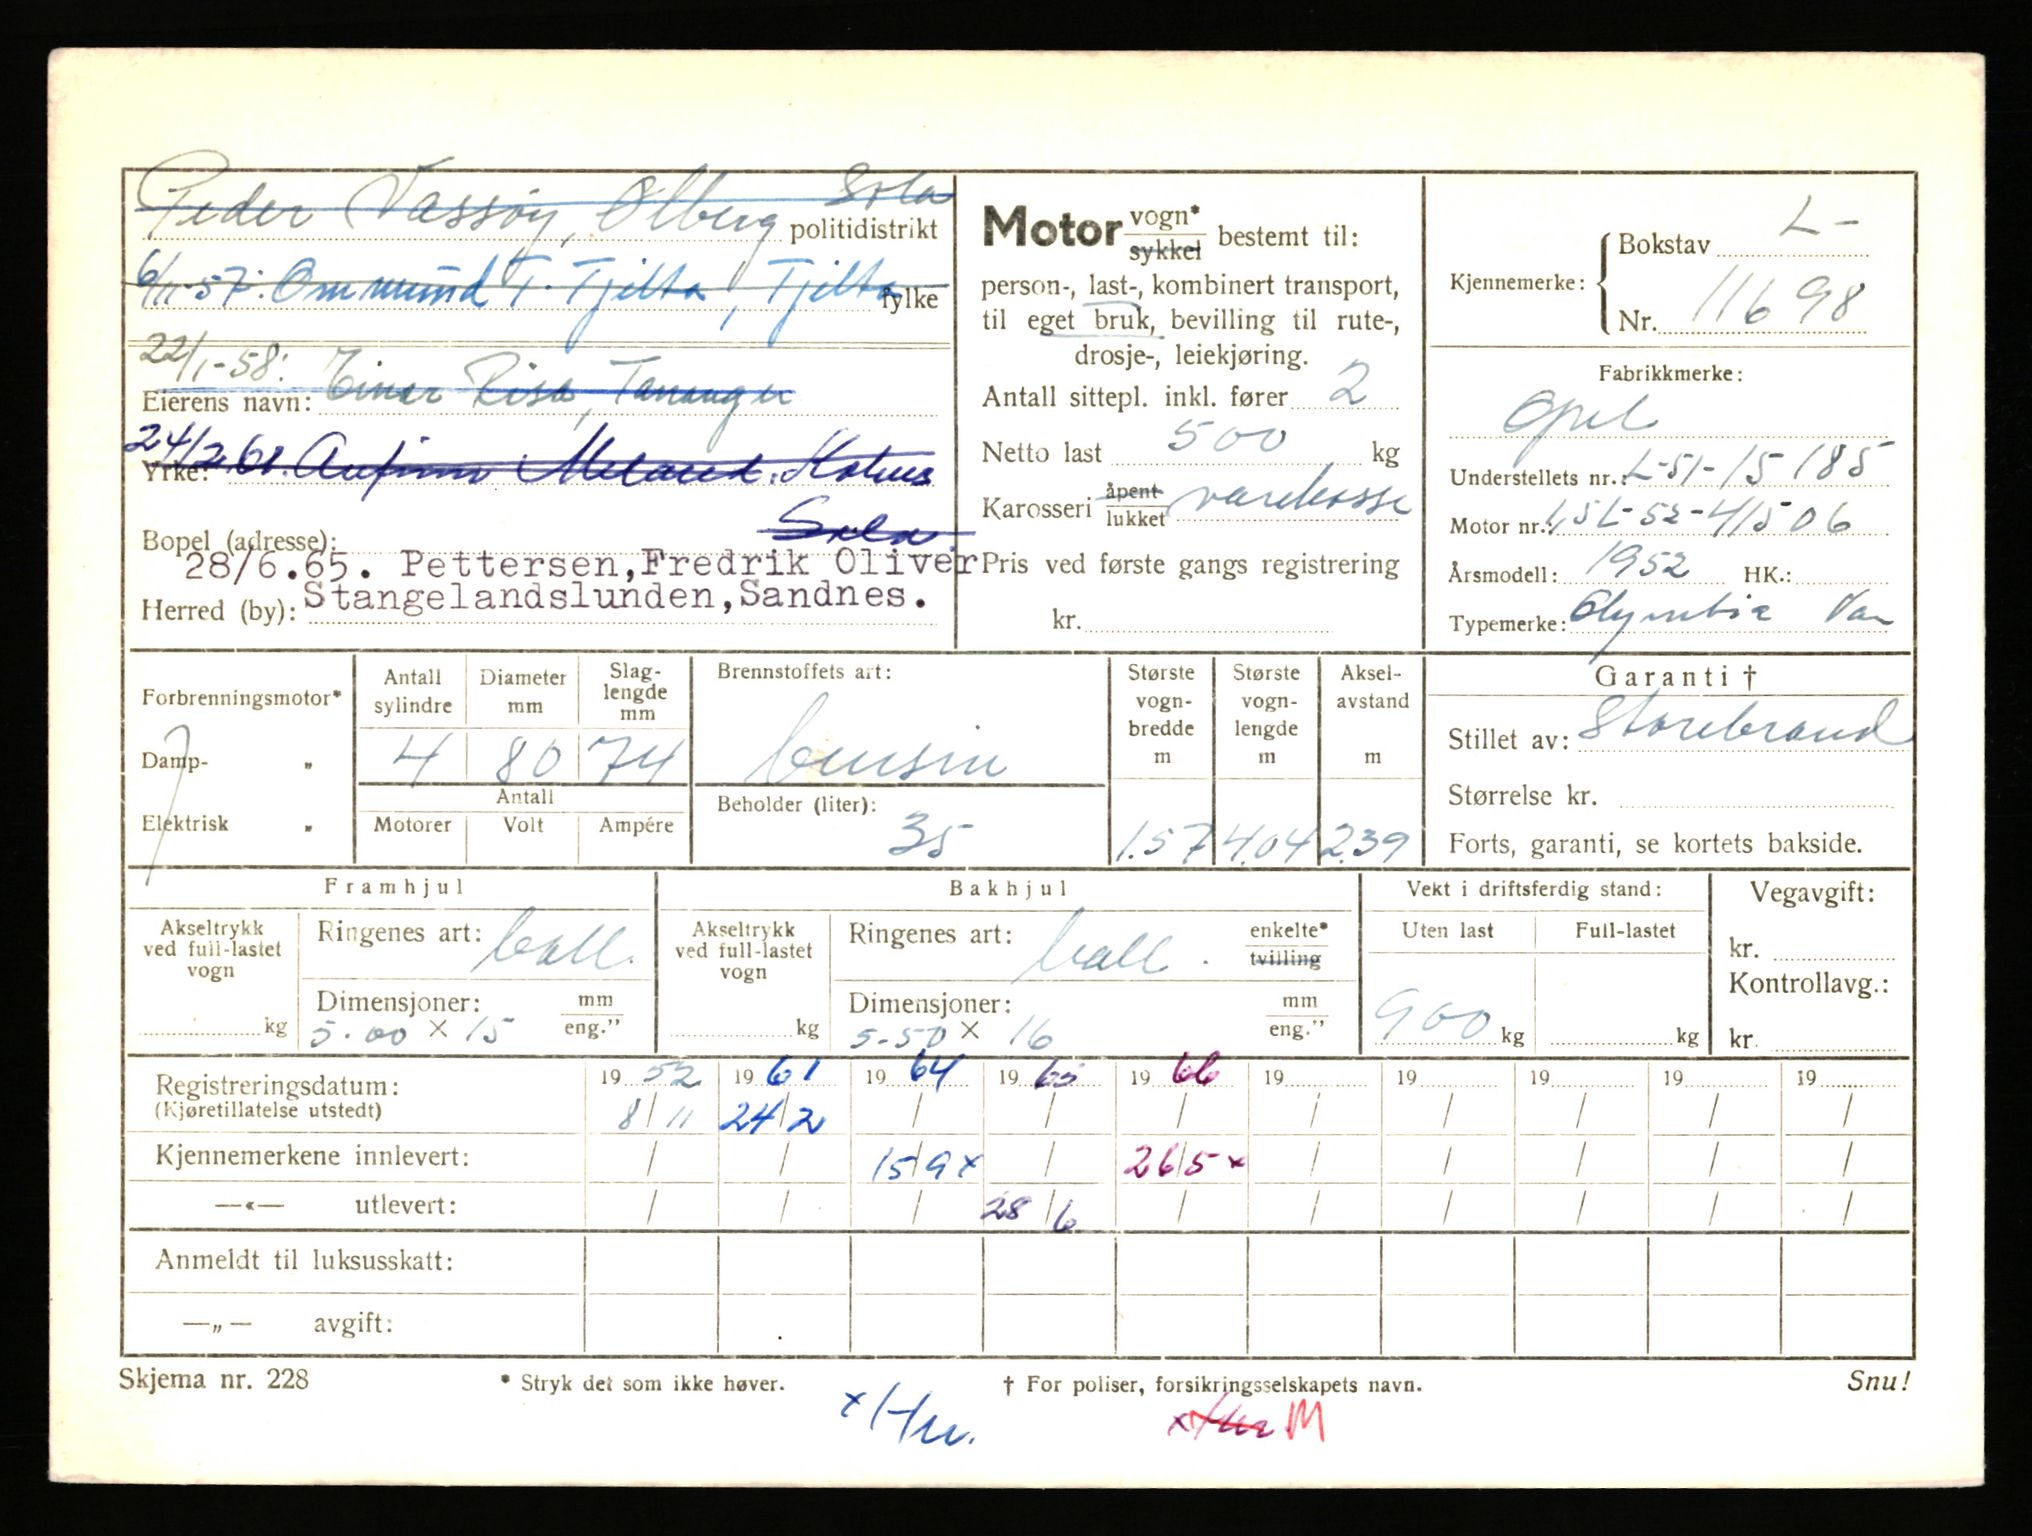 Peder Vassøy, Ølberg Sola
politidistrikt
6/11-57: Ommund T. Tjelta, Tjelta
fylke
22/1-58: Einar Risa, Tananger
Eierens navn:
24/2.61. Meland. Sola
Yrke:
Bopel (adresse):
28/6.65. Pettersen,Fredrik Oliver
Herred (by): Stangelandslunden,Sandnes.
Motor vogn* sykkel bestemt til:
person-, last-, kombinert transport,
til eget bruk, bevilling til rute-,
drosje-, leiekjøring.
Antall sittepl. inkl. fører 2
Netto last 500 kg
Karosseri åpent lukket varekasse
Pris ved første gangs registrering
kr.
Kjennemerke: Bokstav L-
Nr. 11698
Fabrikkmerke:
Opel
Understellets nr.: L-51-15185
Motor nr.: 1,5L-52-41506
Årsmodell: 1952 HK.:
Typemerke: Olymbia Van
Forbrenningsmotor*
Damp- "
Elektrisk "
Antall sylindre Diameter mm Slag-lengde mm
4 80 74
Antall
Motorer Volt Ampére
Brennstoffets art:
bensin
Beholder (liter):
35
Største vogn-bredde m Største vogn-lengde m Aksel-avstand m
1.57 4.04 2.39
Garanti †
Stillet av: Storebrand
Størrelse kr.
Forts, garanti, se kortets bakside.
Framhjul
Akseltrykk ved full-lastet vogn
kg
Ringenes art: ball.
Dimensjoner: mm eng."
5.00 x 15
Bakhjul
Akseltrykk ved full-lastet vogn
kg
Ringenes art: ball. enkelte* tvilling
Dimensjoner: mm eng."
5-50 x 16
Vekt i driftsferdig stand:
Uten last Full-lastet
900 kg kg
Vegavgift:
kr.
Kontrollavg.:
kr.
Registreringsdatum: 19 52 19 61 19 64 19 65 19 66 19 19 19 19 19
(Kjøretillatelse utstedt) 8/11 24/2 / / / / / / / /
Kjennemerkene innlevert: / / 15/9x / 26/5x / / / / /
—«— utlevert: / / / 28/6 / / / / / /
Anmeldt til luksusskatt:
—„— avgift:
Skjema nr. 228 * Stryk det som ikke høver. † For poliser, forsikringsselskapets navn. Snu!
M